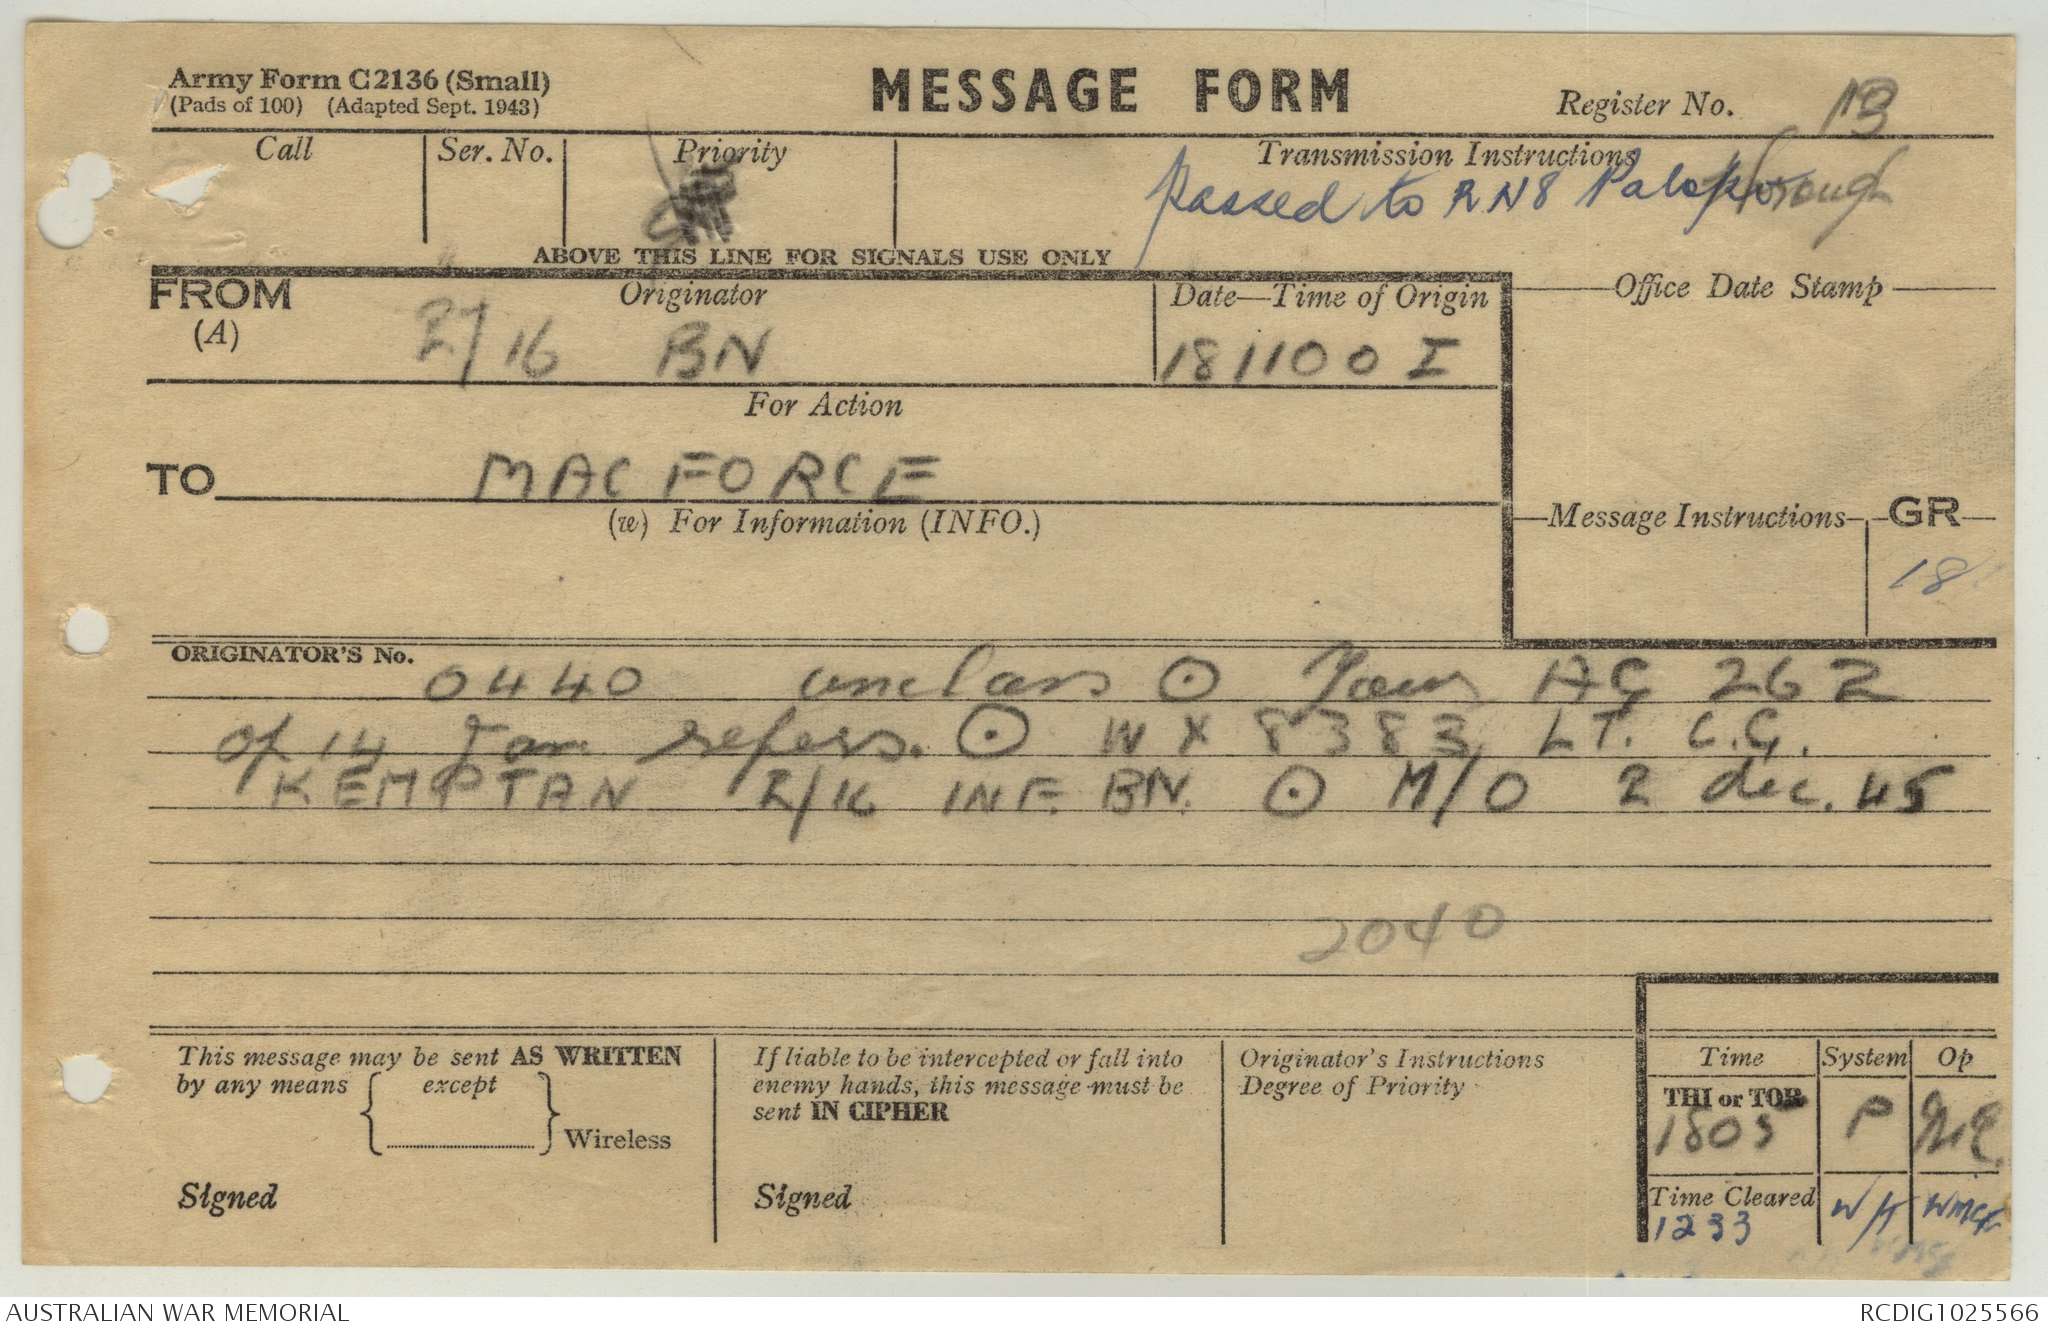 Army Form C2136 (Small)
(Pads of 100) (Adapted Sept. 1943)
MESSAGE FORM
Register No. 13
Call
Ser. No.
Priority
Transmission Instructions
through
passed to RN8
ABOVE THIS LINE FOR SIGNALS USE ONLY
FROM
(A)
Originator
2/16 BN
Date—Time of Origin
181100 I
Office Date Stamp
For Action
TO MAC FORCE
(w) For Information (INFO.)
Message Instructions
GR
18
ORIGINATOR'S No.
0440 unclass ⊙ Your AG 262
of 14 Jan refers. ⊙ WX 8383, LT. C.G.
KEMPTAN 2/16 INF. BN. ⊙ M/O 2 dec. 45
2040
This message may be sent AS WRITTEN
by any means { except
} Wireless
Signed
If liable to be intercepted or fall into
enemy hands, this message must be
sent IN CIPHER
Signed
Originator's Instructions
Degree of Priority
Time System Op
THI or TOR
1805 P
Time Cleared
1233 W/T
AUSTRALIAN WAR MEMORIAL
RCDIG1025566